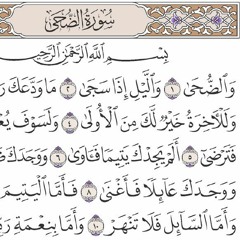 سُورَةُ الضُّحَىٰ
بِسْمِ اللَّهِ الرَّحْمَٰنِ الرَّحِيمِ
وَالضُّحَىٰ ١ وَاللَّيْلِ إِذَا سَجَىٰ ٢ مَا وَدَّعَكَ رَ
وَلَلْآخِرَةُ خَيْرٌ لَّكَ مِنَ الْأُولَىٰ ٤ وَلَسَوْفَ يُعْ
فَتَرْضَىٰ ٥ أَلَمْ يَجِدْكَ يَتِيمًا فَآوَىٰ ٦ وَوَجَدَكَ ضَ
وَوَجَدَكَ عَائِلًا فَأَغْنَىٰ ٨ فَأَمَّا الْيَتِيمَ
وَأَمَّا السَّائِلَ فَلَا تَنْهَرْ ١٠ وَأَمَّا بِنِعْمَةِ رَ